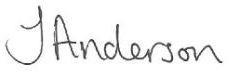 J Anderson